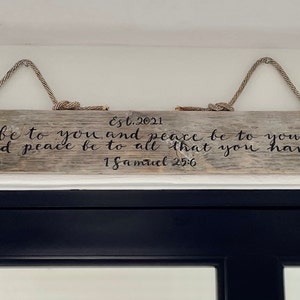 Est. 2021
be to you and peace be to you
peace be to all that you
1 Samuel 25:6